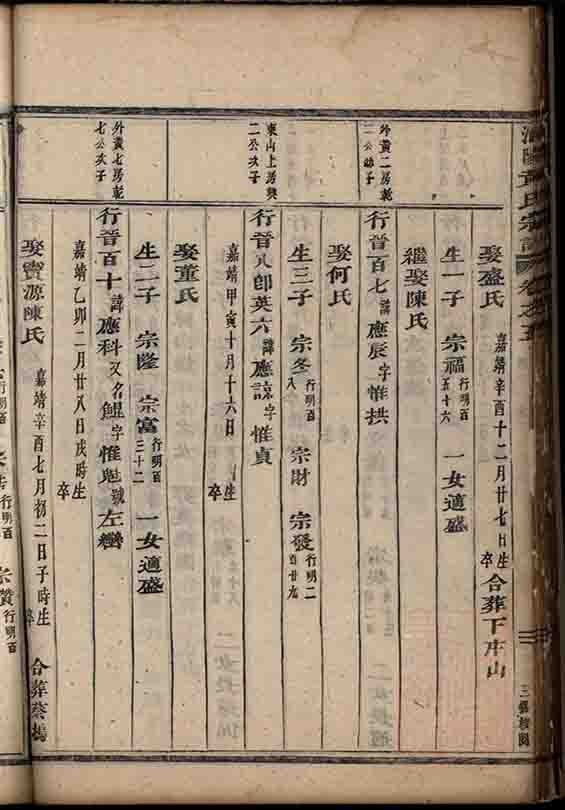 氏宗譜 卷之五
娶盛氏 嘉靖辛酉十二月廿七日生 卒 合葬下庄山
生一子 宗福 行明百五十六 一女適盛
繼娶陳氏
外黃二房乾
行晉百七 諱應辰 字惟拱
娶何氏
生三子 宗冬 行明百八 宗財 宗發 行明二百廿九
東山上房興二公次子
行晉八卽英六 諱應諒 字惟貞
嘉靖甲寅十月十六日生 卒
娶童氏
生二子 宗隆 宗富 行明百三十二 一女適盛
外黃七房乾七公次子
行晉百十 諱應科 又名鯤 字惟魁 號左巒
嘉靖乙卯二月廿八日戌時生 卒
娶竇源陳氏 嘉靖辛酉七月初二日子時生 卒 合葬蔡塢
宗贊 行明百